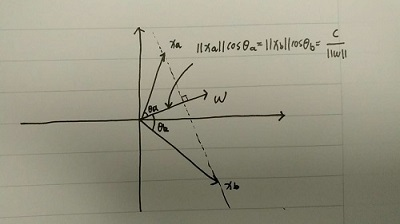 xa
||xa||cosθa=||xb||cosθb= C/||w||
θa
w
θb
xb